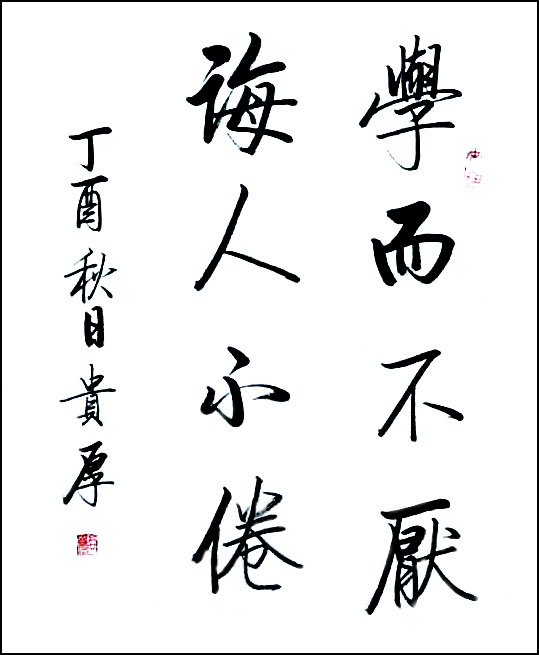 學而不厭
誨人不倦
丁酉秋日貴厚